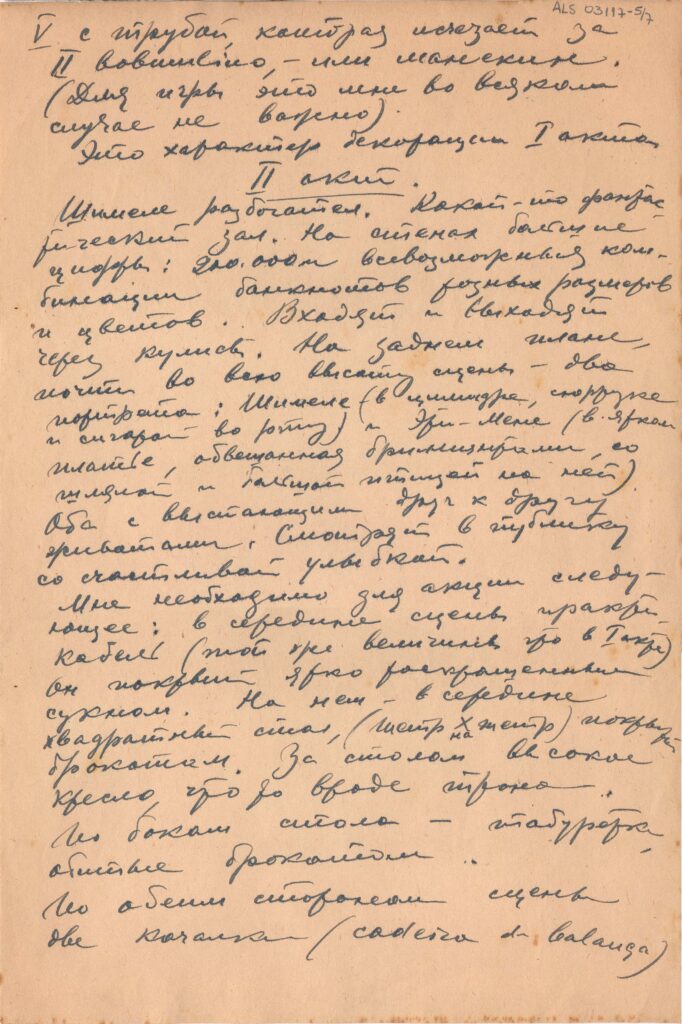 ALS 03197-5/7
V с трубой, которая исчезает за
II
, – или манекин.
(Для игры это мне во всяком
случае не важно).
Это характер декорации I акта
II акт.
Шимеле разбогател. Какой-то фантас-
тический зал. На стенах большие
цифры: 200.000 и всевозможные ком-
бинации банкнотов разных размеров
и цветов. Входят и выходят
через кулисы. На заднем плане,
почти во всю высоту сцены – два
портрета: Шимеле (в цилиндре, сюртуке
и сигарой во рту) и Эти-Мене (в ярком
платье, обвешанная бриллиантами, со
шляпой и большой птицей на ней)
Оба с выстающими друг к другу
животами. Смотрят в публику
со счастливой улыбкой.
Мне необходимо для акции следу-
ющее: в середине сцены практи-
кабель (той же величины что в I акте)
Он покрыт ярко раскрашенным
сукном. На нем – в середине
квадратный стол, (метр на метр) покрытый
брокатом. За столом высокое
кресло, что-то вроде трона.
По бокам стола – табуретки,
обитые брокатом..
По обеим сторонам сцены
две качалки (cadeira de balança)